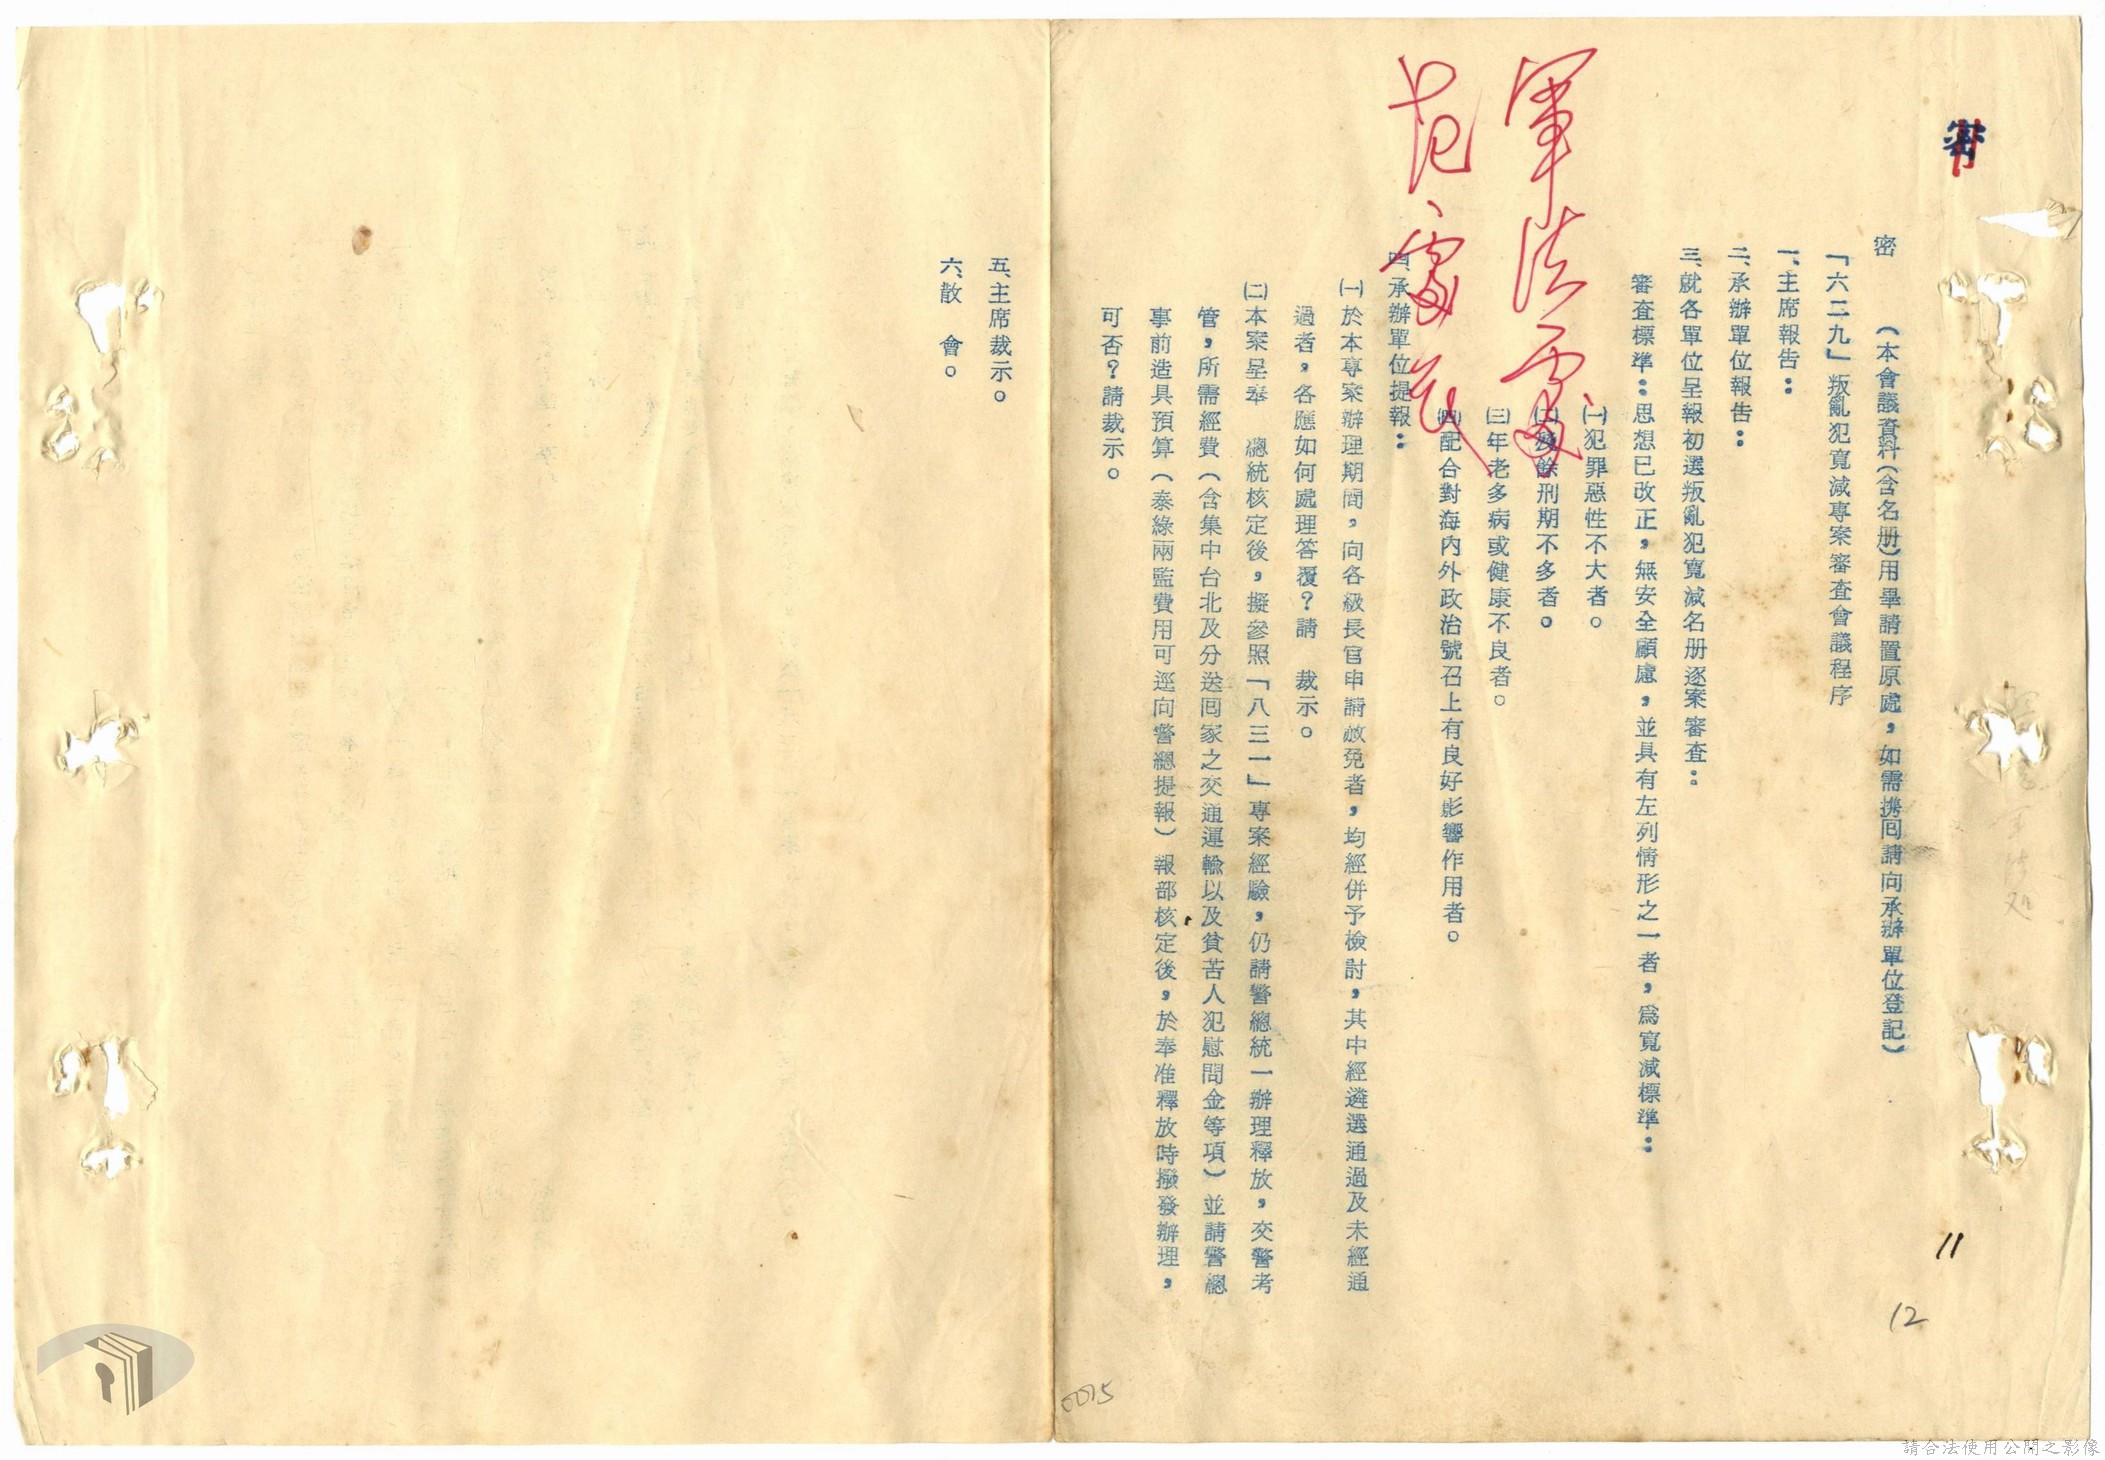 密
密　（本會議資料（含名册）用畢請置原處，如需携囘請向承辦單位登記）
「六二九」叛亂犯寬減專案審查會議程序
一、主席報告：
二、承辦單位報告：
三、就各單位呈報初選叛亂犯寬減名册逐案審查：
審查標準：思想已改正，無安全顧慮，並具有左列情形之一者，爲寬減標準：
㈠犯罪惡性不大者。
㈡殘餘刑期不多者。
㈢年老多病或健康不良者。
㈣配合對海內外政治號召上有良好影響作用者。
四、承辦單位提報：
㈠於本專案辦理期間，向各級長官申請赦免者，均經併予檢討，其中經遴選通過及未經通
過者，各應如何處理答覆？請　裁示。
㈡本案呈奉　總統核定後，擬參照「八三一」專案經驗，仍請警總統一辦理釋放，交警考
管，所需經費（含集中台北及分送囘家之交通運輸以及貧苦人犯慰問金等項）並請警總
事前造具預算（泰綠兩監費用可逕向警總提報）報部核定後，於奉准釋放時撥發辦理，
可否？請裁示。
五、主席裁示。
六、散　會。
軍法處
范處長
11
12
0015
請合法使用公開之影像